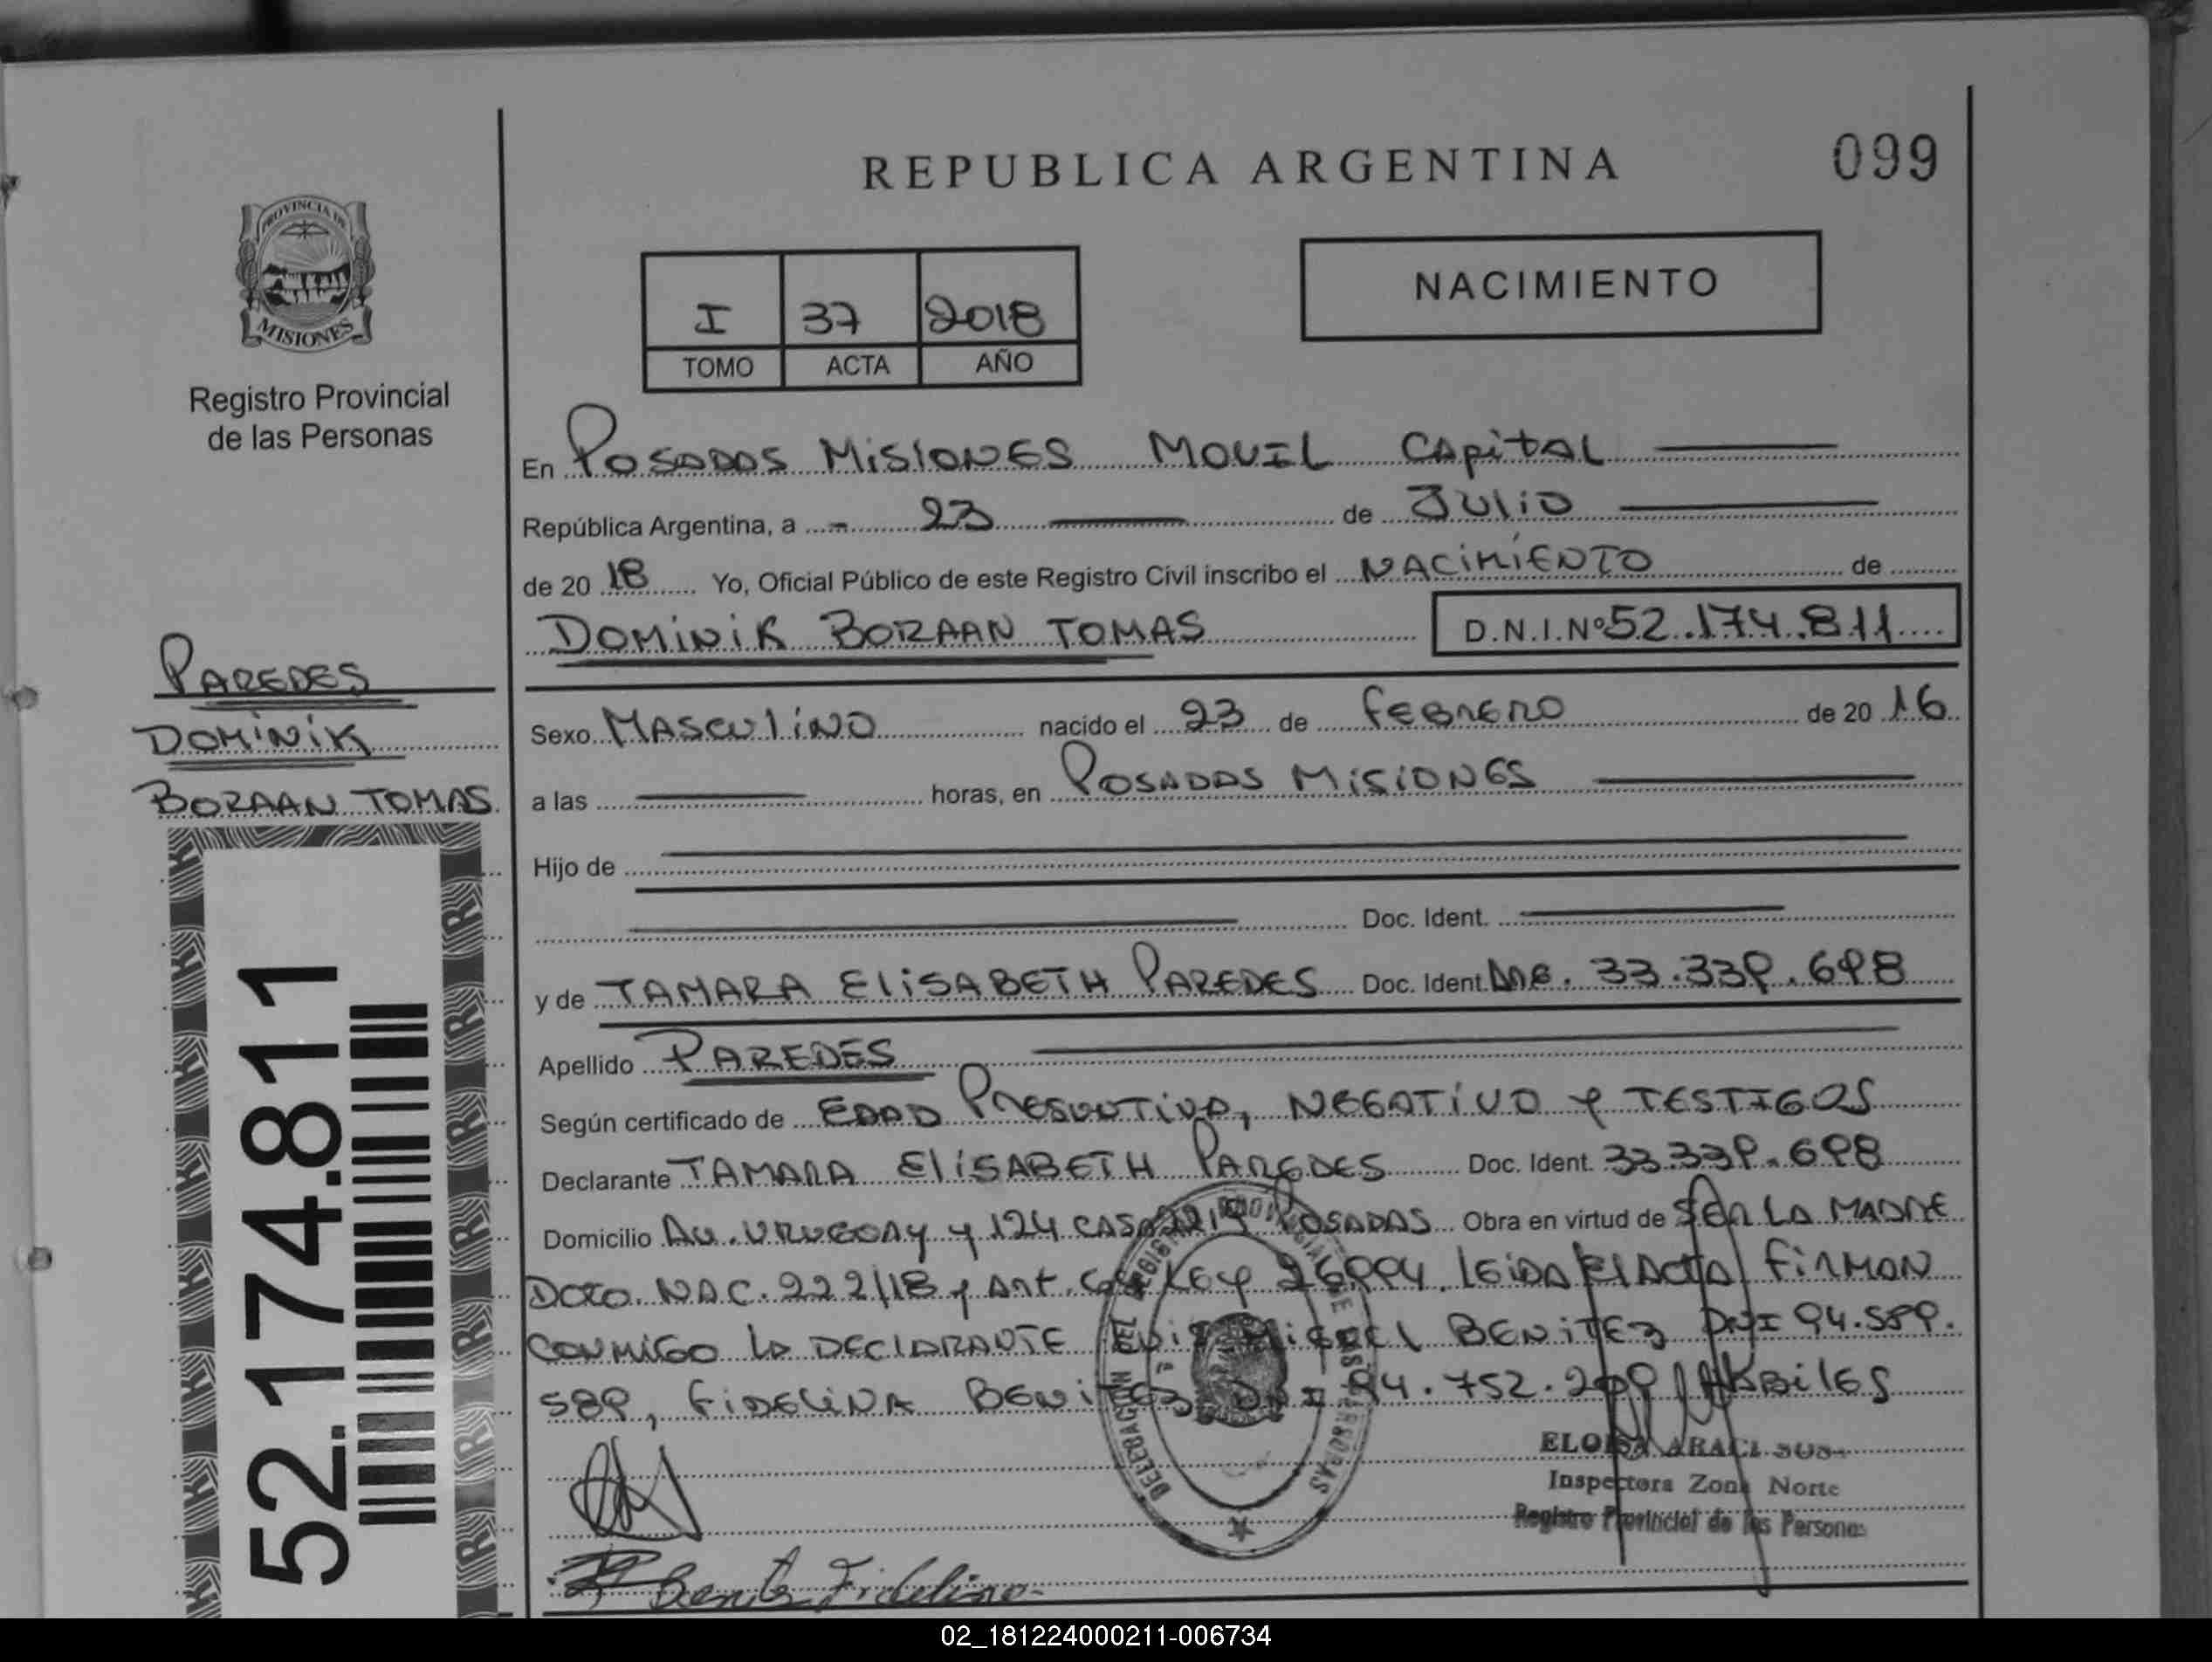 REPUBLICA ARGENTINA
099
PROVINCIA DE
MISIONES
Registro Provincial
de las Personas
I 37 2018
TOMO ACTA AÑO
NACIMIENTO
En POSADAS MISIONES MOVIL CAPITAL
República Argentina, a 23 de JULIO
de 20 18 Yo, Oficial Público de este Registro Civil inscribo el NACIMIENTO de
DOMINIK BORAAN TOMAS D.N.I.Nº 52.174.811
PAREDES
DOMINIK
BORAAN TOMAS
52.174.811
Sexo MASCULINO nacido el 23 de FEBRERO de 20 16
a las horas, en POSADAS MISIONES
Hijo de
Doc. Ident.
y de TAMARA ELISABETH PAREDES Doc. Ident. DNI. 33.339.698
Apellido PAREDES
Según certificado de EDAD PRESUNTIVA, NEGATIVO Y TESTIGOS
Declarante TAMARA ELISABETH PAREDES Doc. Ident. 33.339.698
Domicilio AV. URUGUAY Y 124 CASA POSADAS Obra en virtud de SER LA MADRE
DCTO. NAC. 222/18 y ART. LEY 26994. LEIDA EL ACTA FIRMAN
CONMIGO LA DECLARANTE MIGUEL BENITEZ DNI 94.589.
589, FIDELINA BENITEZ DNI 94.752.209 HABILES
ELOISA ARACI
Inspectora Zona Norte
Registro Provincial de las Personas
Benitez Fidelina
02_181224000211-006734